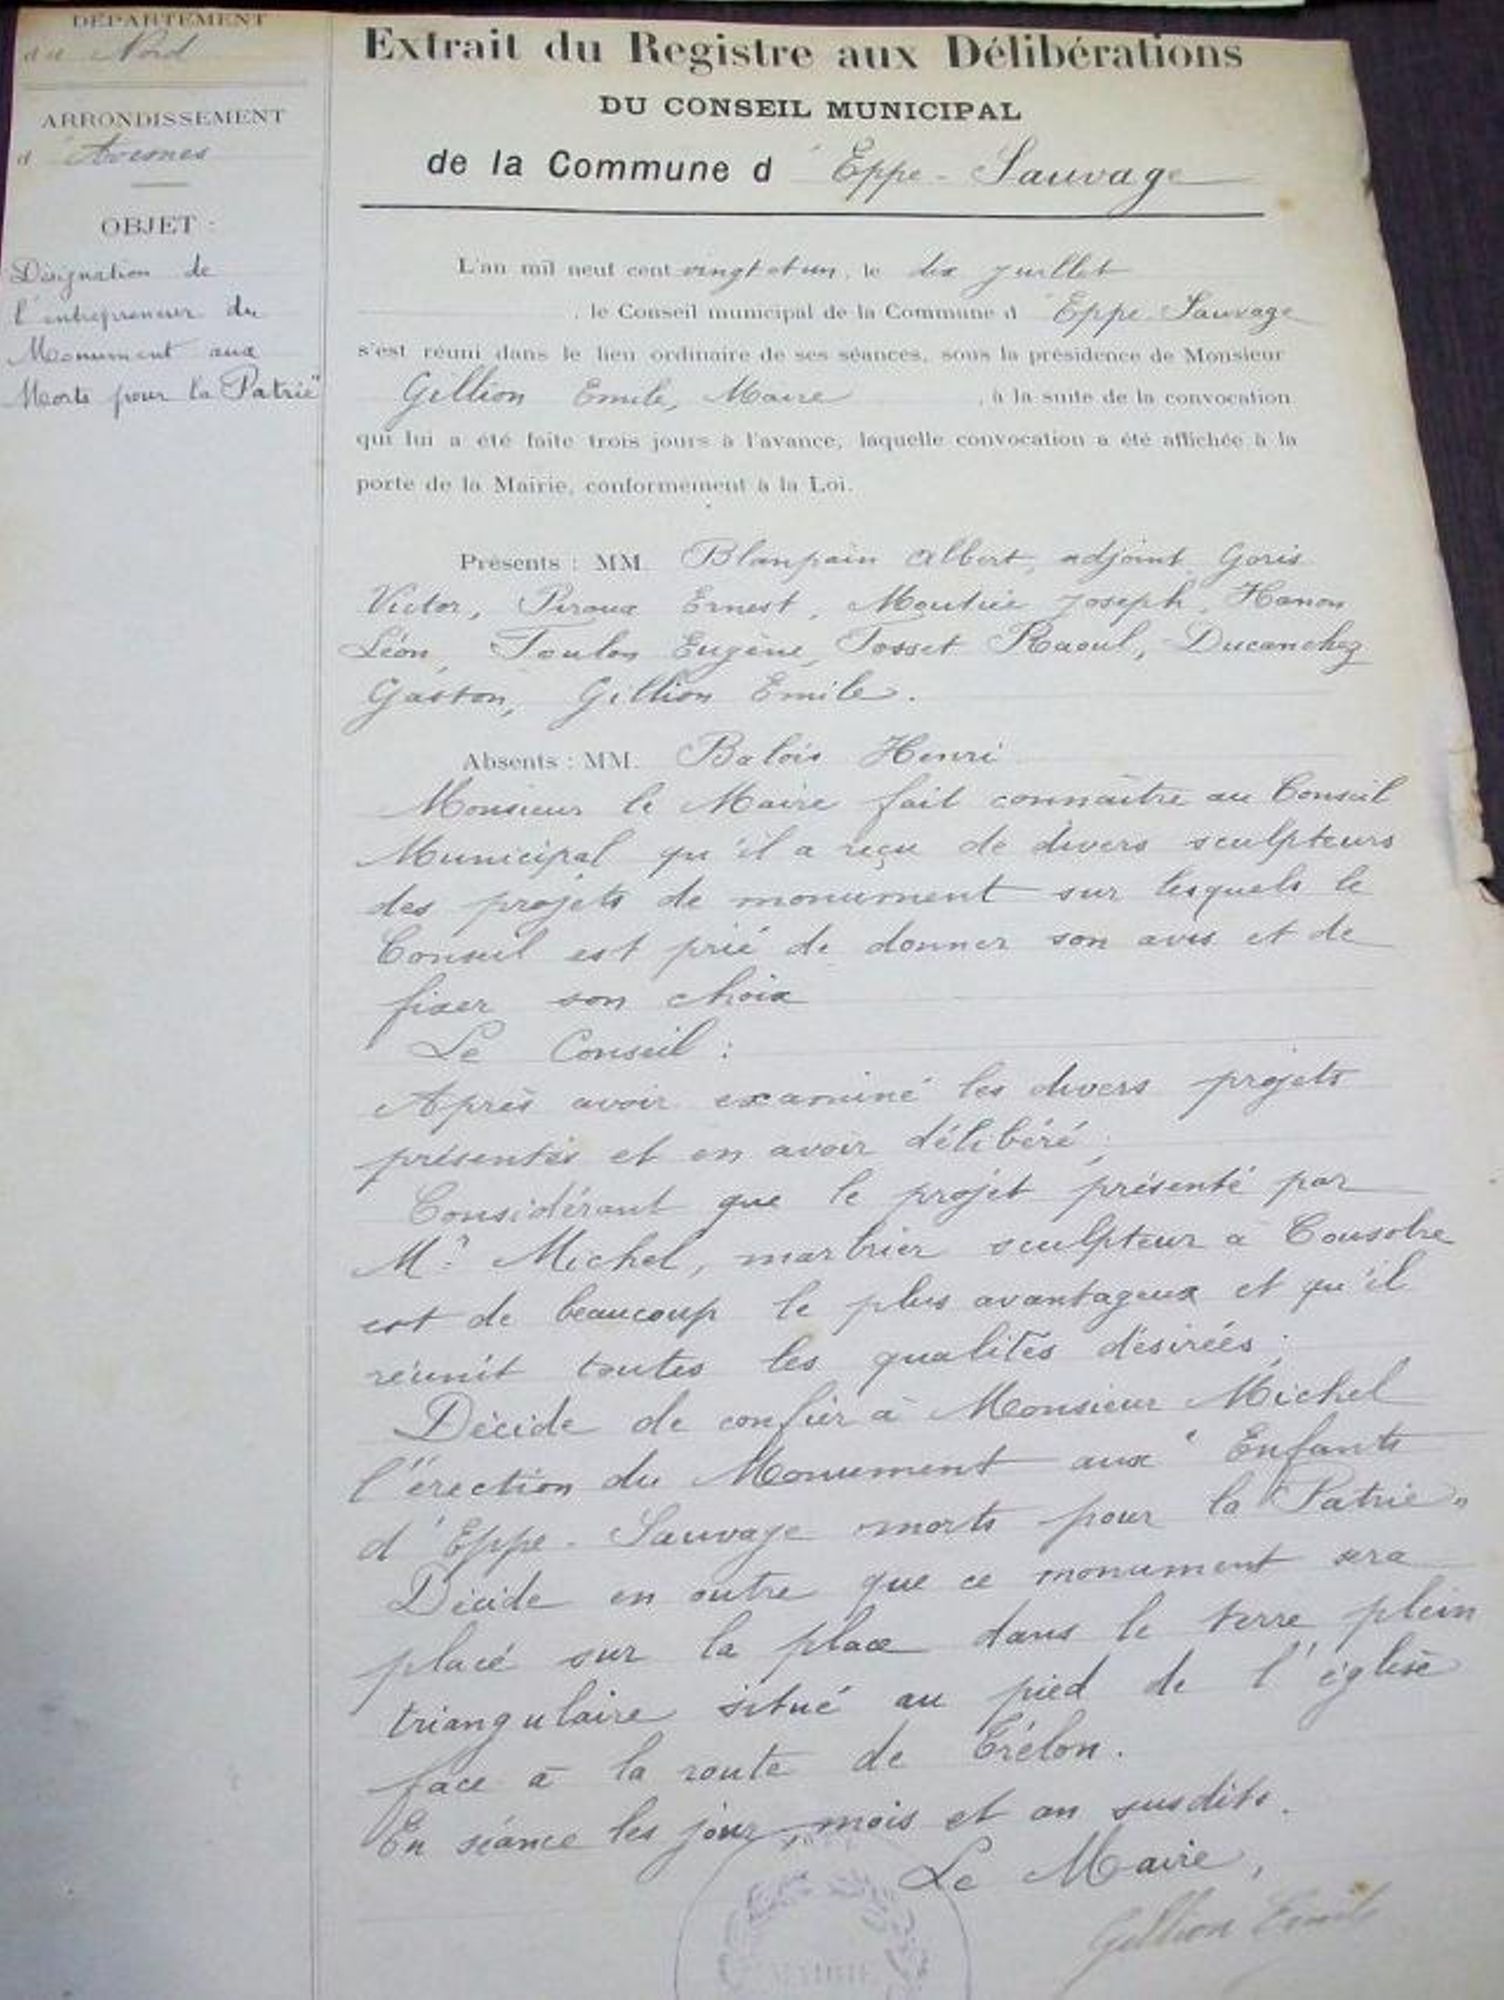 DÉPARTEMENT
du Nord
ARRONDISSEMENT
d'Avesnes
OBJET :
Désignation de
l'entrepreneur du
Monument aux
Morts pour la Patrie"
Extrait du Registre aux Délibérations
DU CONSEIL MUNICIPAL
de la Commune d'Eppe-Sauvage
L'an mil neuf cent vingt et un, le dix juillet
, le Conseil municipal de la Commune d'Eppe-Sauvage
s'est réuni dans le lieu ordinaire de ses séances, sous la présidence de Monsieur
Gillion Emile, Maire , à la suite de la convocation
qui lui a été faite trois jours à l'avance, laquelle convocation a été affichée à la
porte de la Mairie, conformément à la Loi.
Présents : MM. Blanpain Albert, adjoint, Goris
Victor, Piroux Ernest, Moutier Joseph, Hanon
Léon, Toulon Eugène, Tosset Raoul, Ducanchez
Gaston, Gillion Emile.
Absents : MM. Balois Henri
Monsieur le Maire fait connaître au Conseil
Municipal qu'il a reçu de divers sculpteurs
des projets de monument sur lesquels le
Conseil est prié de donner son avis et de
fixer son choix
Le Conseil :
Après avoir examiné les divers projets
présentés et en avoir délibéré ;
Considérant que le projet présenté par
Mr Michel, marbrier sculpteur à Cousolre
est de beaucoup le plus avantageux et qu'il
réunit toutes les qualités désirées ;
Décide de confier à Monsieur Michel
l'érection du Monument aux "Enfants
d'Eppe-Sauvage morts pour la Patrie"
Décide en outre que ce monument sera
placé sur la place dans le terre plein
triangulaire situé au pied de l'église
face à la route de Trélon.
En séance les jour, mois et an susdits.
Le Maire,
Gillion Emile
MAIRIE